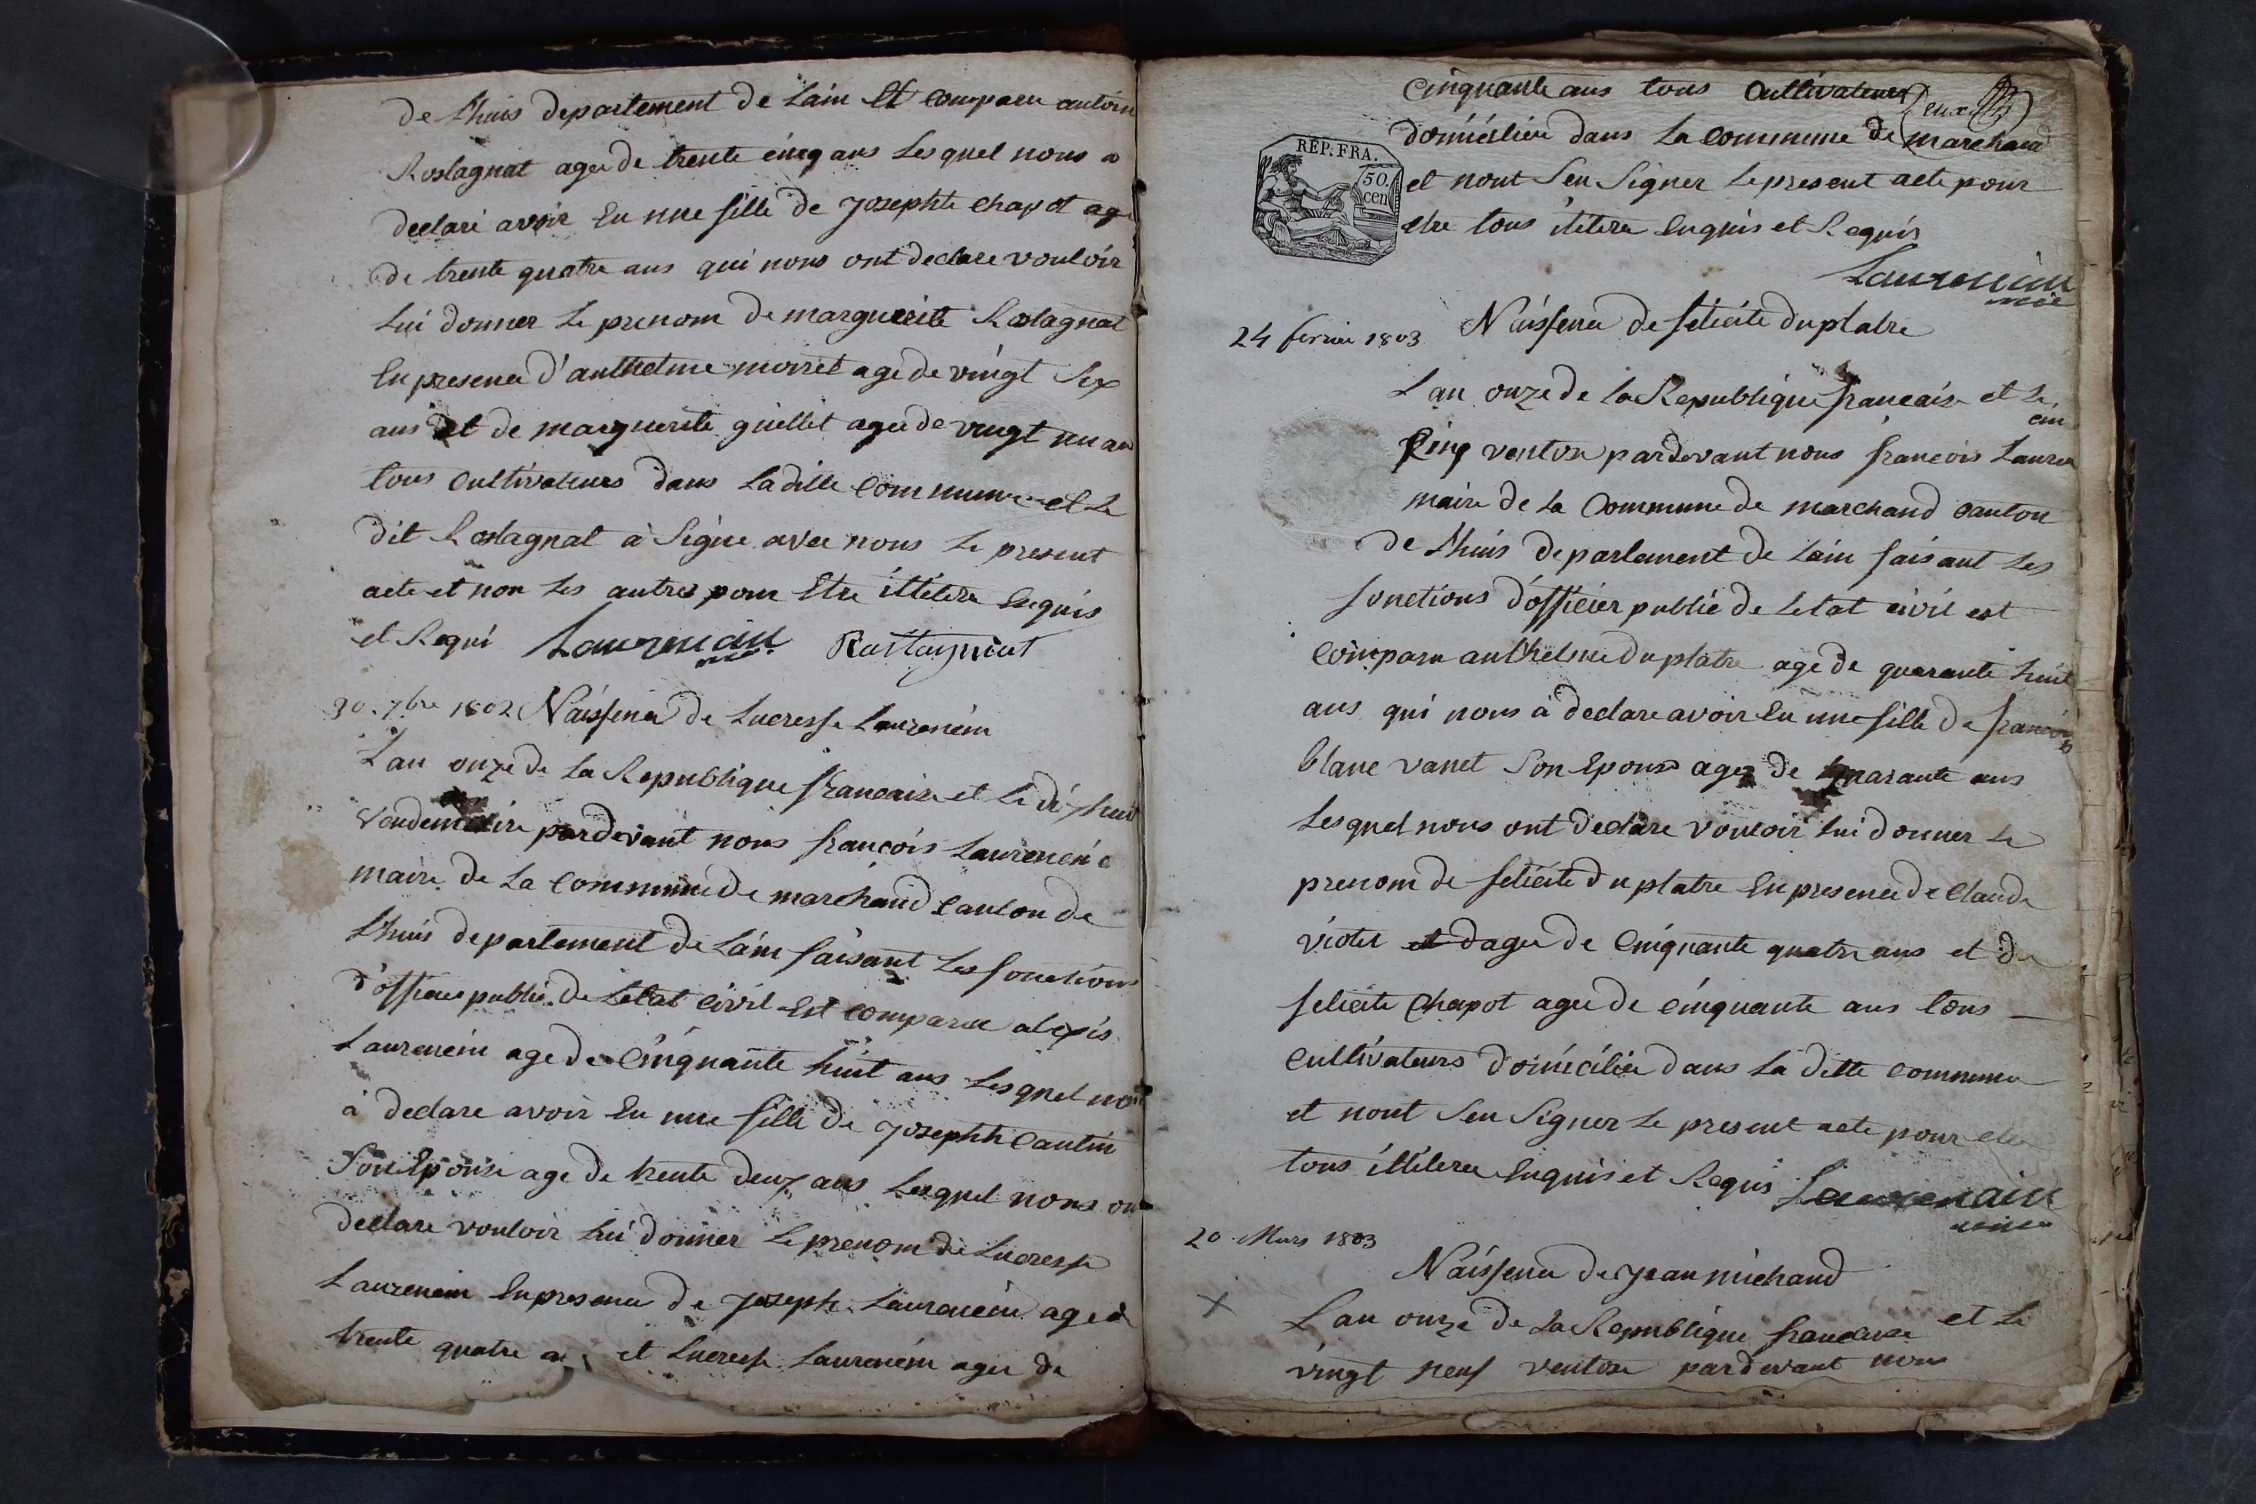 de Lhuis departement de Lain Et comparu antoin
Rostagnat agee de trente cinq ans Lesquel nous a
declaré avoir Eu une fille de Josephte chapot age
de trente quatre ans qui nous ont declare vouloir
Lui donner Le prenom de marguerite Rostagnat
En presence d'anthelme moiret age de vingt Six
ans et de marguerite guillet agee de vingt un an
tous cultivateurs dans Ladille commune et Le
dit Rostagnat à Signé avec nous Le present
acte et non Les autres pour Etre illitere Enquis
et Requi Laurencin Rostagniat
maire
30. 7bre 1802 Naissence de Lucresse Laurencin
Lan onze de La Republique francaise et Le dixhuit
vendemiaire pardevant nous francois Laurencin
maire de La commune de marchand canton de
Lhuis departement de Lain faisant Les fonctions
d'officier public de Letat civil Est comparu alexis
Laurencin age de cinquante huit ans Lesquel nous
à declare avoir Eu une fille de Josephte cantin
Son Epouse age de trente deux ans Lesquel nous on
declare vouloir Lui donner Le prenom de Lucresse
Laurencin En presence de Joseph Laurencin age d
trente quatre a et Lucresse Laurencin agee de
cinquante ans tous cultivateurs
deux
domicilies dans La commune de marchand
et nont Seu Signer Le present acte pour
etre tous iletere Enquis et Requis
RÉP. FRA.
50.
cen
Laurencin
maire
24 fevrier 1803 Naissence de felicite duplatre
Lan onze de La Republique francaise et Le
cin
Cinq ventose pardevant nous francois Lauren
maire de La commune de marchand canton
de Lhuis departement de Lain faisant Les
fonctions d'officier public de Letat civil est
comparu anthelme duplatre age de quarante huit
ans qui nous à declare avoir Eu une fille de francois
blanc vanet Son Epouse agee de quarante ans
Lesquel nous ont declare vouloir Lui donner Le
prenom de felicite duplatre En presence de Claude
violet et dagee de Cinquante quatre ans et de
felicite chapot agee de cinquante ans tous
cultivateurs domicilie dans La ditte commune
et nont Seu Signer Le present acte pour etre
tous illitere Enquis et Requis Laurencin
maire
20 Mars 1803
Naissence de Jean michaud
X
Lan onze de La Republique francaise et Le
vingt neuf ventose pardevant nous